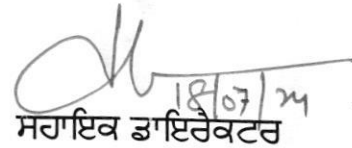 18/07/24
ਸਹਾਇਕ ਡਾਇਰੈਕਟਰ